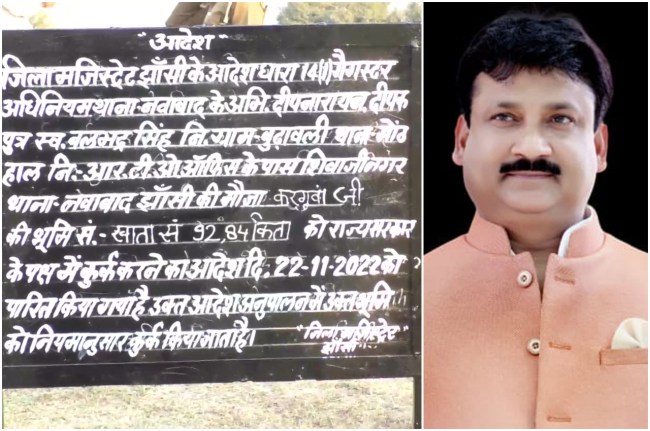 "आदेश"
जिला मजिस्ट्रेट झाँसी के आदेश धारा 14(1) गैंगस्टर
अधिनियम थाना-नवाबाद के अभि. दीपनारायन, दीपक
पुत्र स्व. बलभद्र सिंह नि. ग्राम-बुढ़ावली थाना-मोंठ
हाल नि.- आर.टी.ओ. ऑफिस के पास शिवाजी नगर
थाना- नवाबाद झाँसी की मौजा करगुवां जी
की भूमि सं.- खाता सं 92,84 किता को राज्य सरकार
के पक्ष में कुर्क करने का आदेश दि. 22-11-2022 को
पारित किया गया है, उक्त आदेश अनुपालन में उक्त भूमि
को नियमानुसार कुर्क किया जाता है। "जिला मजिस्ट्रेट"
झाँसी